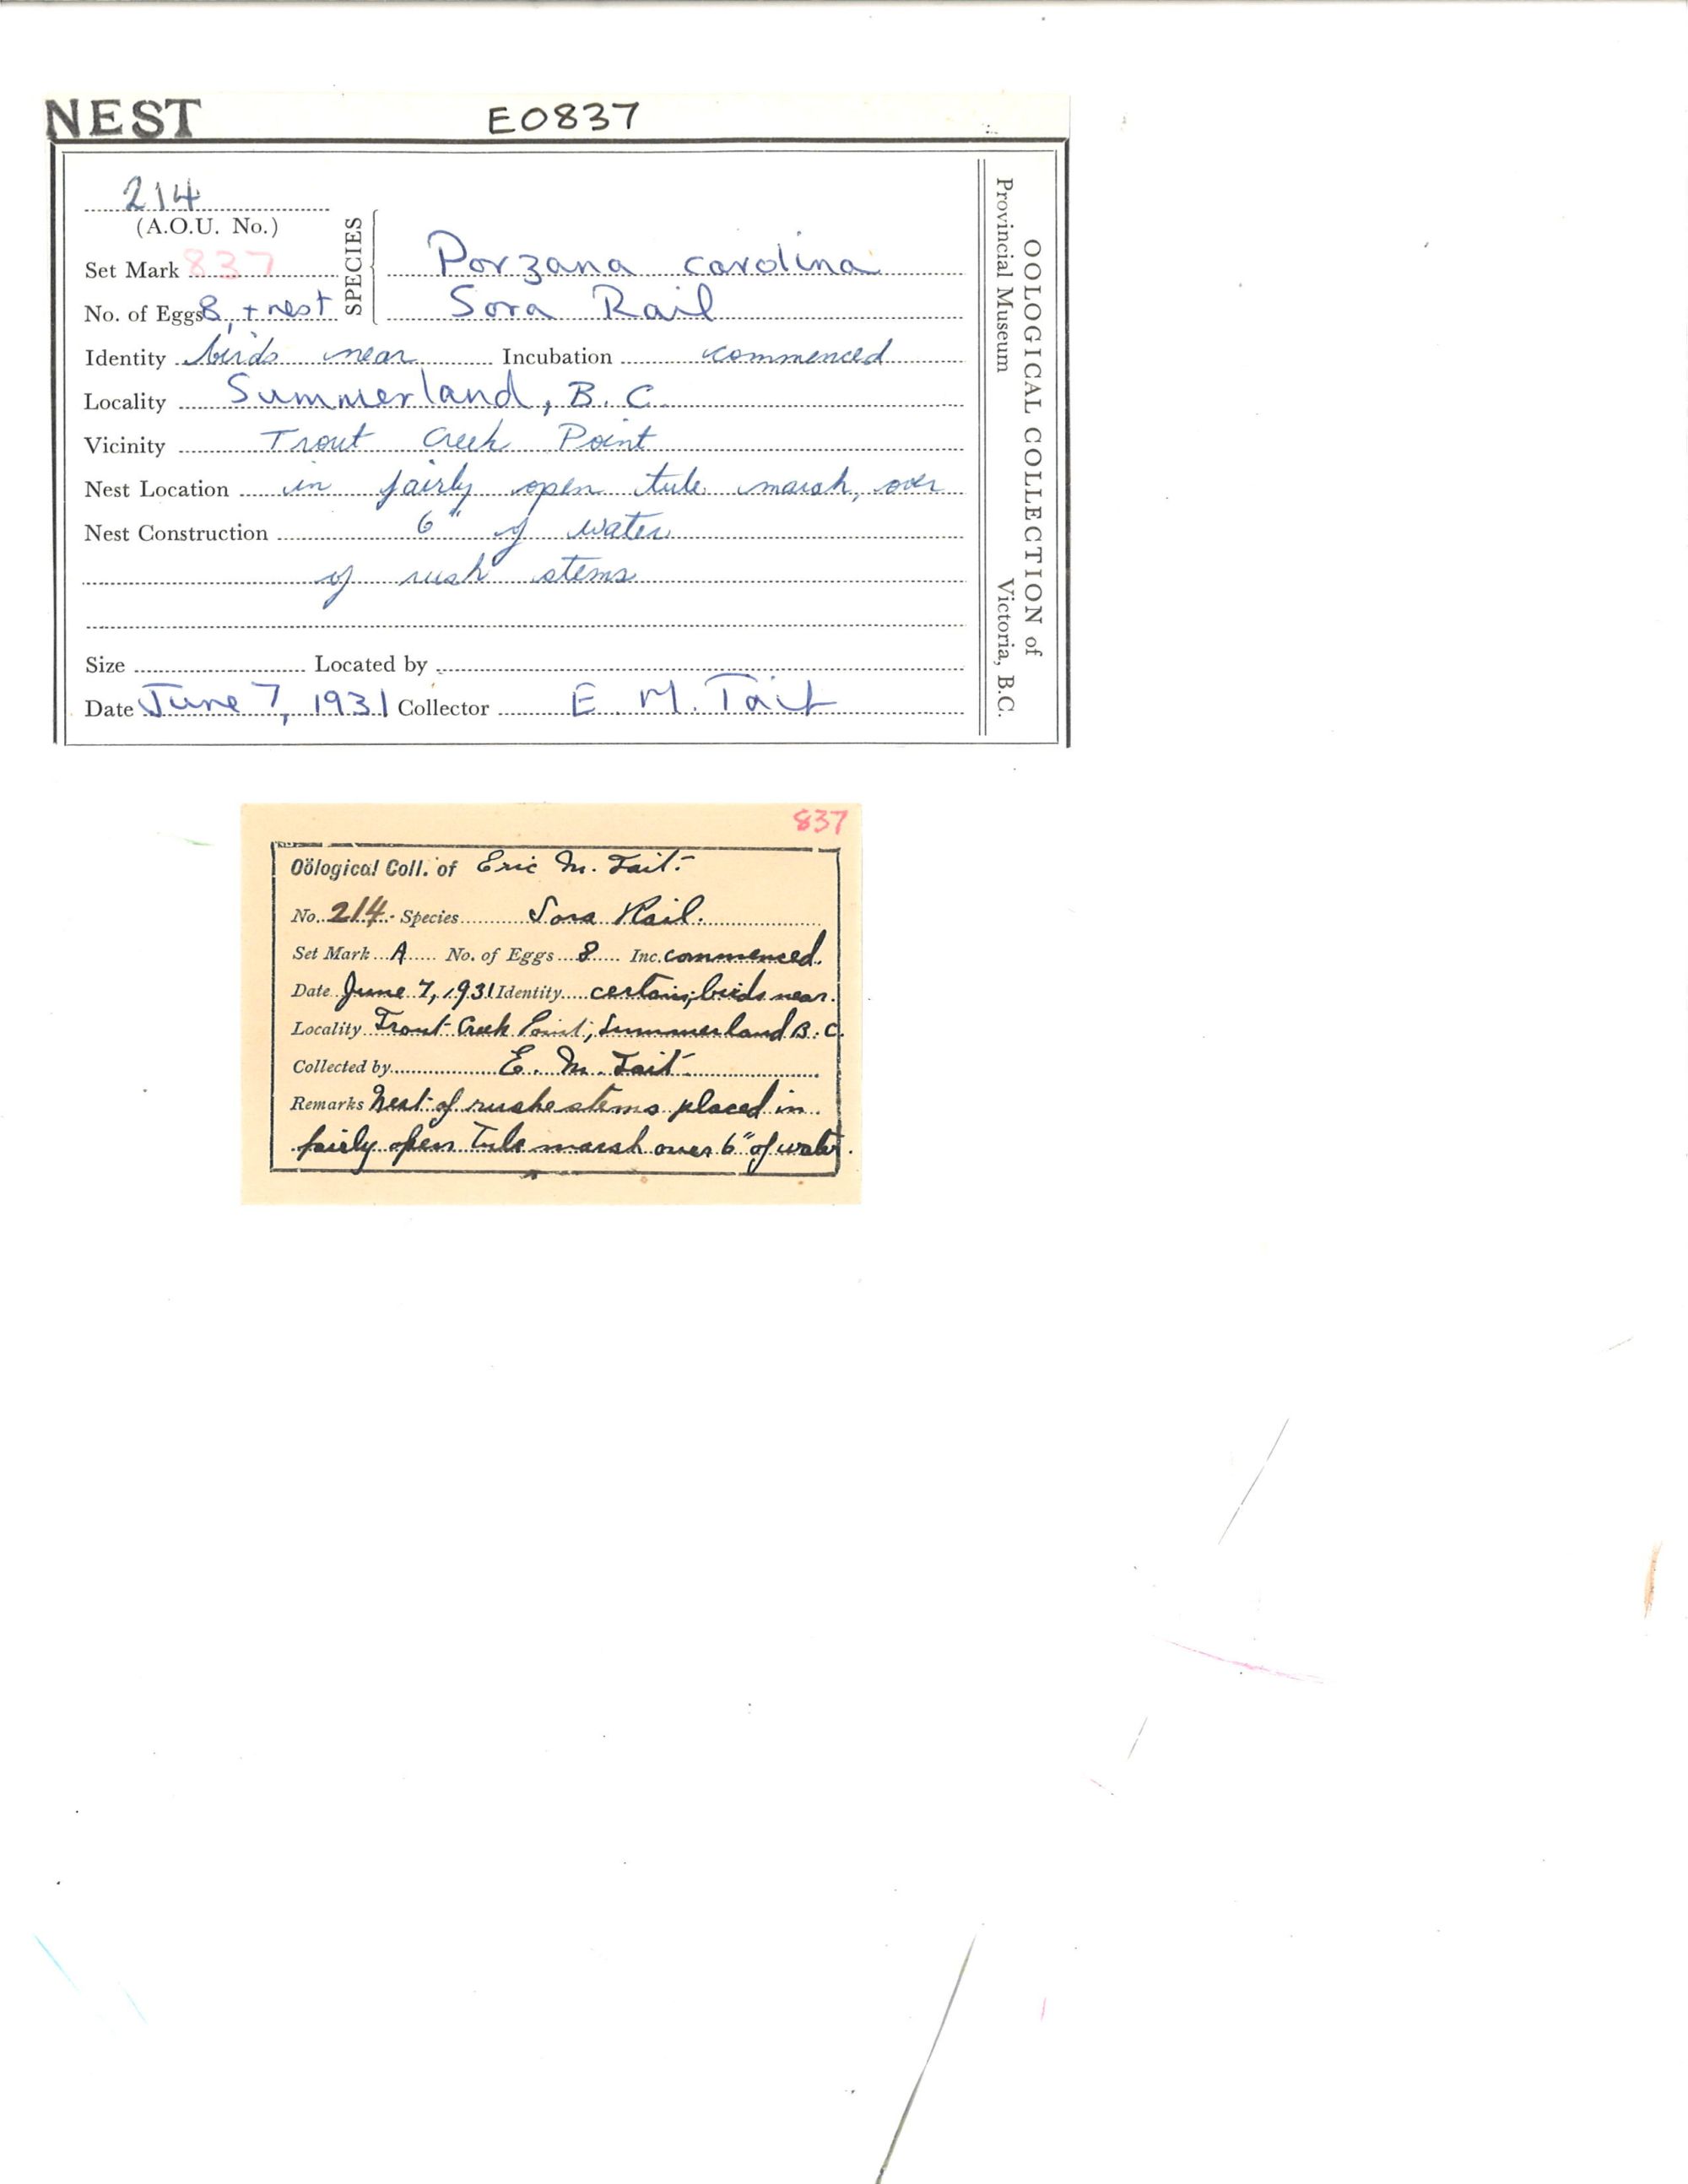 NEST
E0837
214
(A.O.U. No.)
Set Mark 837
No. of Eggs 8, + nest
SPECIES
Porzana carolina
Sora Rail
Identity birds near Incubation commenced
Locality Summerland, B. C.
Vicinity Trout Creek Point
Nest Location in fairly open tule marsh, over
Nest Construction 6" of water
of rush stems
Size Located by
Date June 7, 1931 Collector E. M. Tait
OOLOGICAL COLLECTION of
Provincial Museum Victoria, B.C.
837
Oölogical Coll. of Eric M. Tait.
No. 214. Species Sora Rail.
Set Mark A No. of Eggs 8 Inc. commenced.
Date June 7, 1931 Identity certain; birds near.
Locality Trout Creek Point, Summerland B.C.
Collected by E. M. Tait.
Remarks Nest of rushe stems placed in
fairly open Tule marsh over 6" of water.